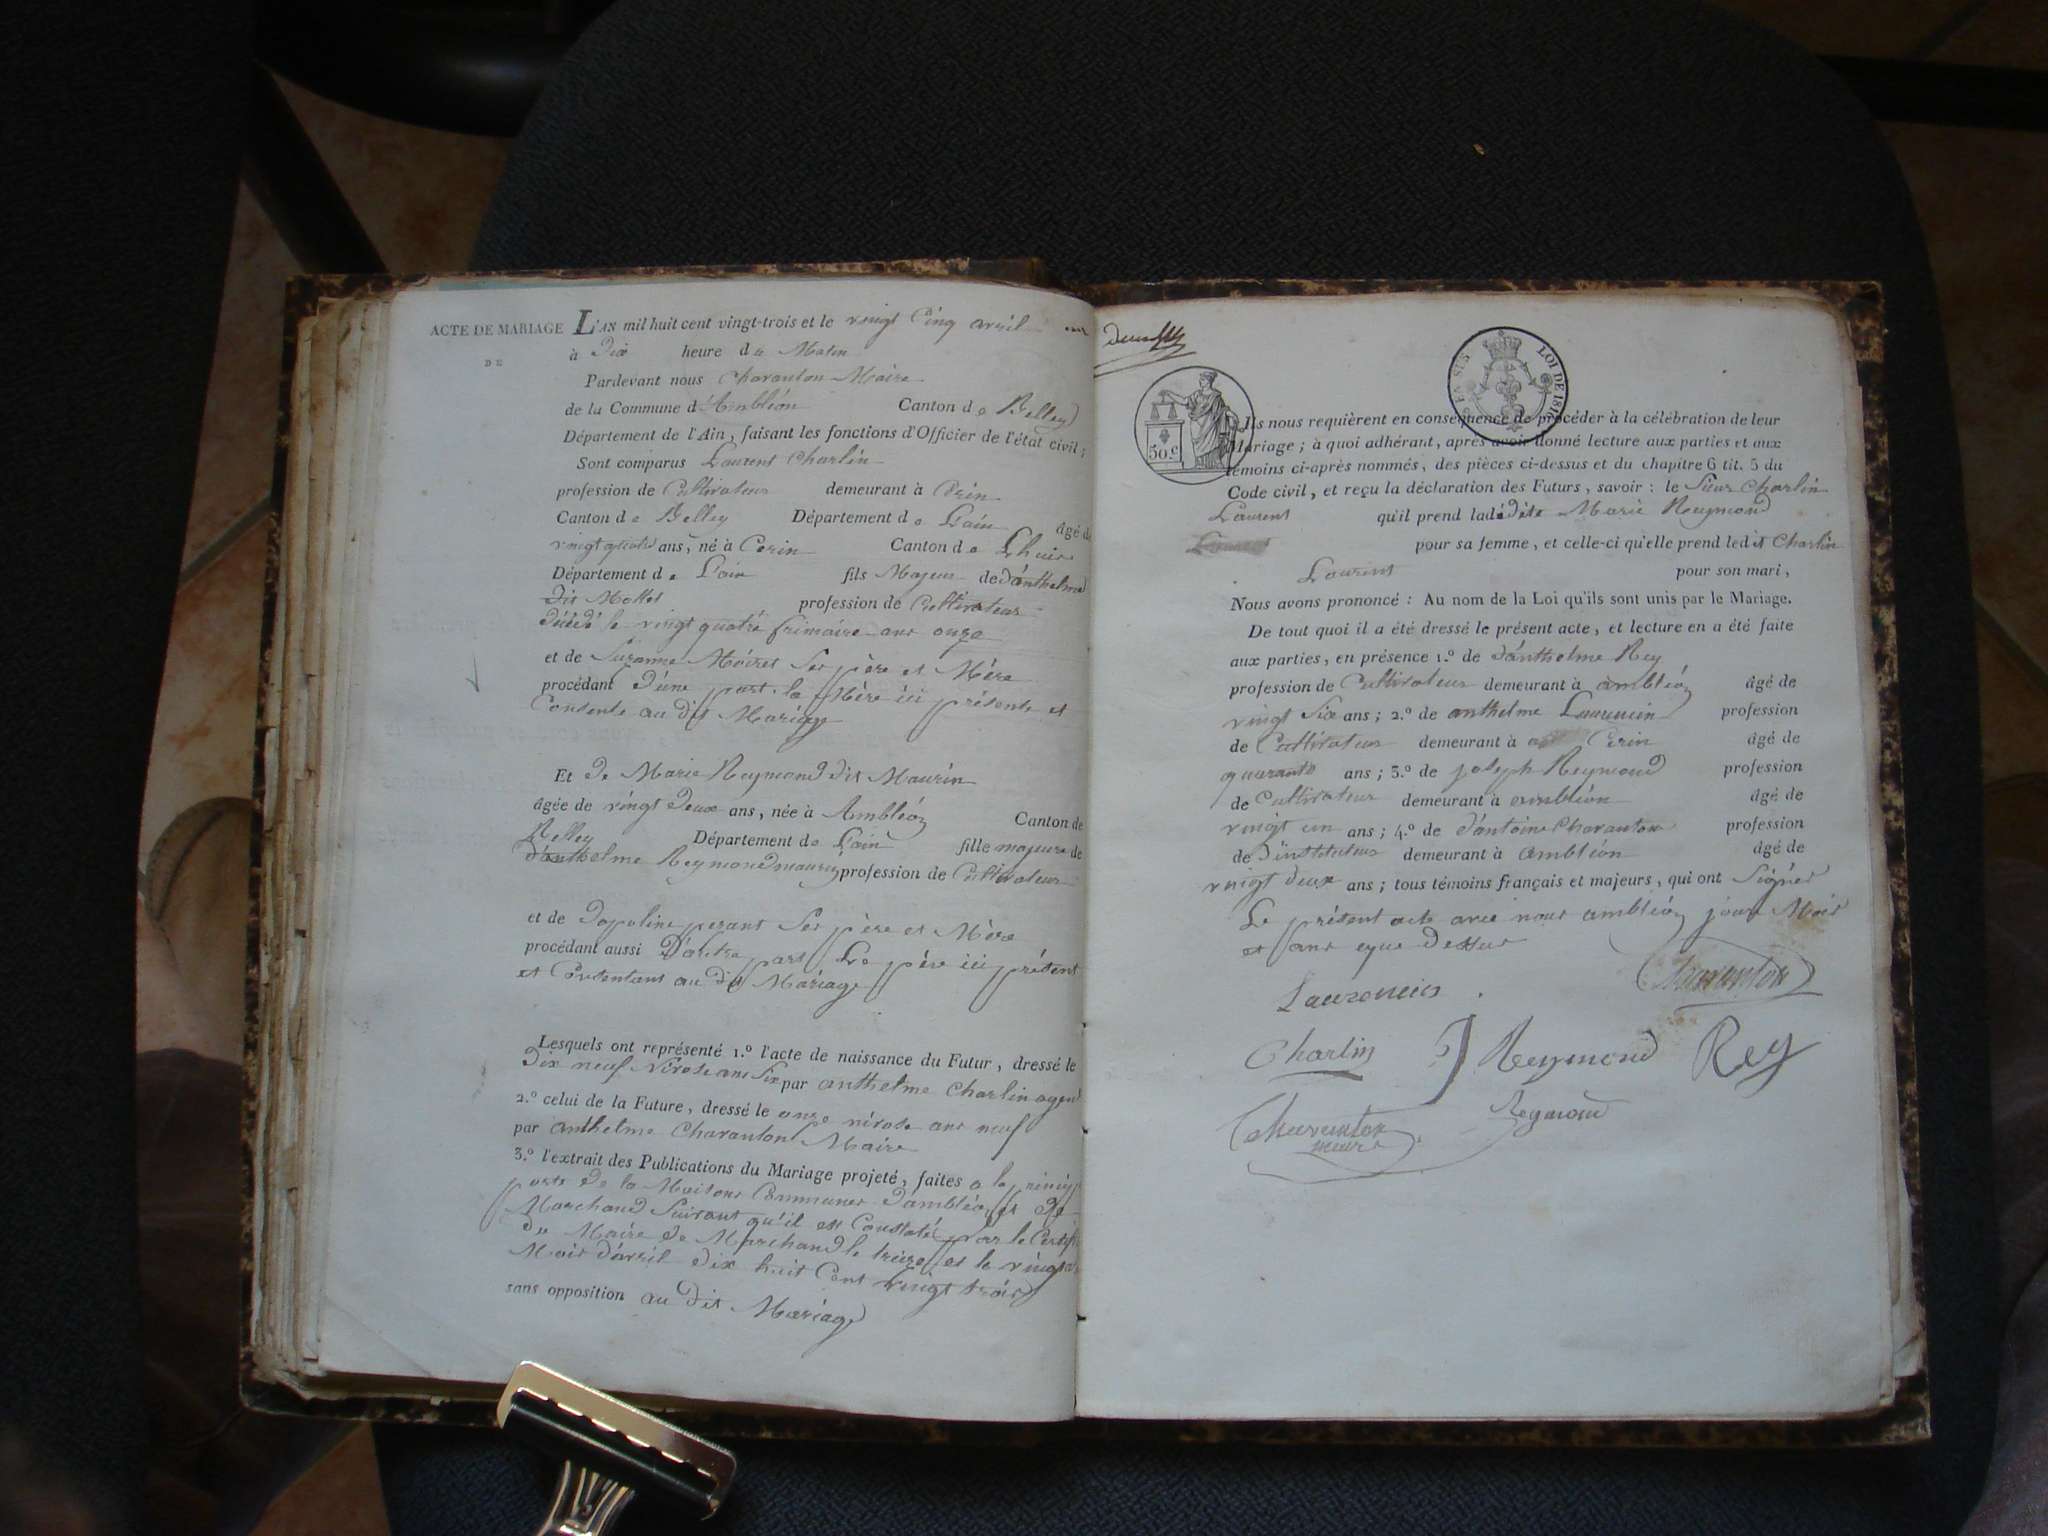 ACTE DE MARIAGE
DE
L'AN mil huit cent vingt-trois et le vingt Cinq avril
à Dix heure du Matin
Pardevant nous Charanton Maire
de la Commune d'Ambléon Canton de Belley
Département de l'Ain, faisant les fonctions d'Officier de l'état civil;
Sont comparus Laurent Charlin
profession de Cultivateur demeurant à Cerin
Canton de Belley Département de Lain âgé de
vingt quatre ans, né à Cerin Canton de Lhuis
Département de L'ain fils Majeur de d'anthelme
profession de Cultivateur
décédé le vingt quatre frimaire ans onze
et de Suzanne Ses père et Mère
procédant d'une part. la Mère ici présente et
Consente au dit Mariage
Et de Marie Reymond dit Maurin
âgée de vingt deux ans, née à Ambléon Canton de
Belley Département de Lain fille majeure de
d'anthelme Reymond maurin profession de Cultivateur
et de Ses père et Mère
procédant aussi D'autre part Le père ici présent
et Consentant au dit Mariage
Lesquels ont représenté 1.º l'acte de naissance du Futur, dressé le
Dix neuf Nivose ans Six par anthelme Charlin agent
2.º celui de la Future, dressé le onze nivose ans neuf
par anthelme Charanton Maire
3.º l'extrait des Publications du Mariage projeté, faites a la
porte de la Maison Commune d'ambléon et de
Marchand Suivant qu'il est Constaté par le
du Maire de Marchand le treize et le vingt
Mois d'avril dix huit Cent vingt trois
sans opposition au dit Mariage
LOI DE 1816
50 c.
Ils nous requièrent en conséquence de procéder à la célébration de leur
Mariage; à quoi adhérant, après avoir donné lecture aux parties et aux
témoins ci-après nommés, des pièces ci-dessus et du chapitre 6 tit. 5 du
Code civil, et reçu la déclaration des Futurs, savoir: le Sieur Charlin
Laurent qu'il prend ladite Marie Reymond
pour sa femme, et celle-ci qu'elle prend ledit Charlin
Laurent pour son mari,
Nous avons prononcé: Au nom de la Loi qu'ils sont unis par le Mariage.
De tout quoi il a été dressé le présent acte, et lecture en a été faite
aux parties, en présence 1.º de d'anthelme Rey
profession de Cultivateur demeurant à ambléon âgé de
vingt Six ans; 2.º de anthelme Laurencin profession
de Cultivateur demeurant à Cerin âgé de
quarante ans; 3.º de joseph Reymond profession
de Cultivateur demeurant à ambléon âgé de
vingt un ans; 4.º de d'antoine Charanton profession
de d'instituteur demeurant à ambléon âgé de
vingt deux ans; tous témoins français et majeurs, qui ont Signés
Le présent acte avec nous ambléon jour Mois
et ans que dessus
Charanton
Laurencin
Charlin
Reymond
Rey
Charanton
maire
Reymond